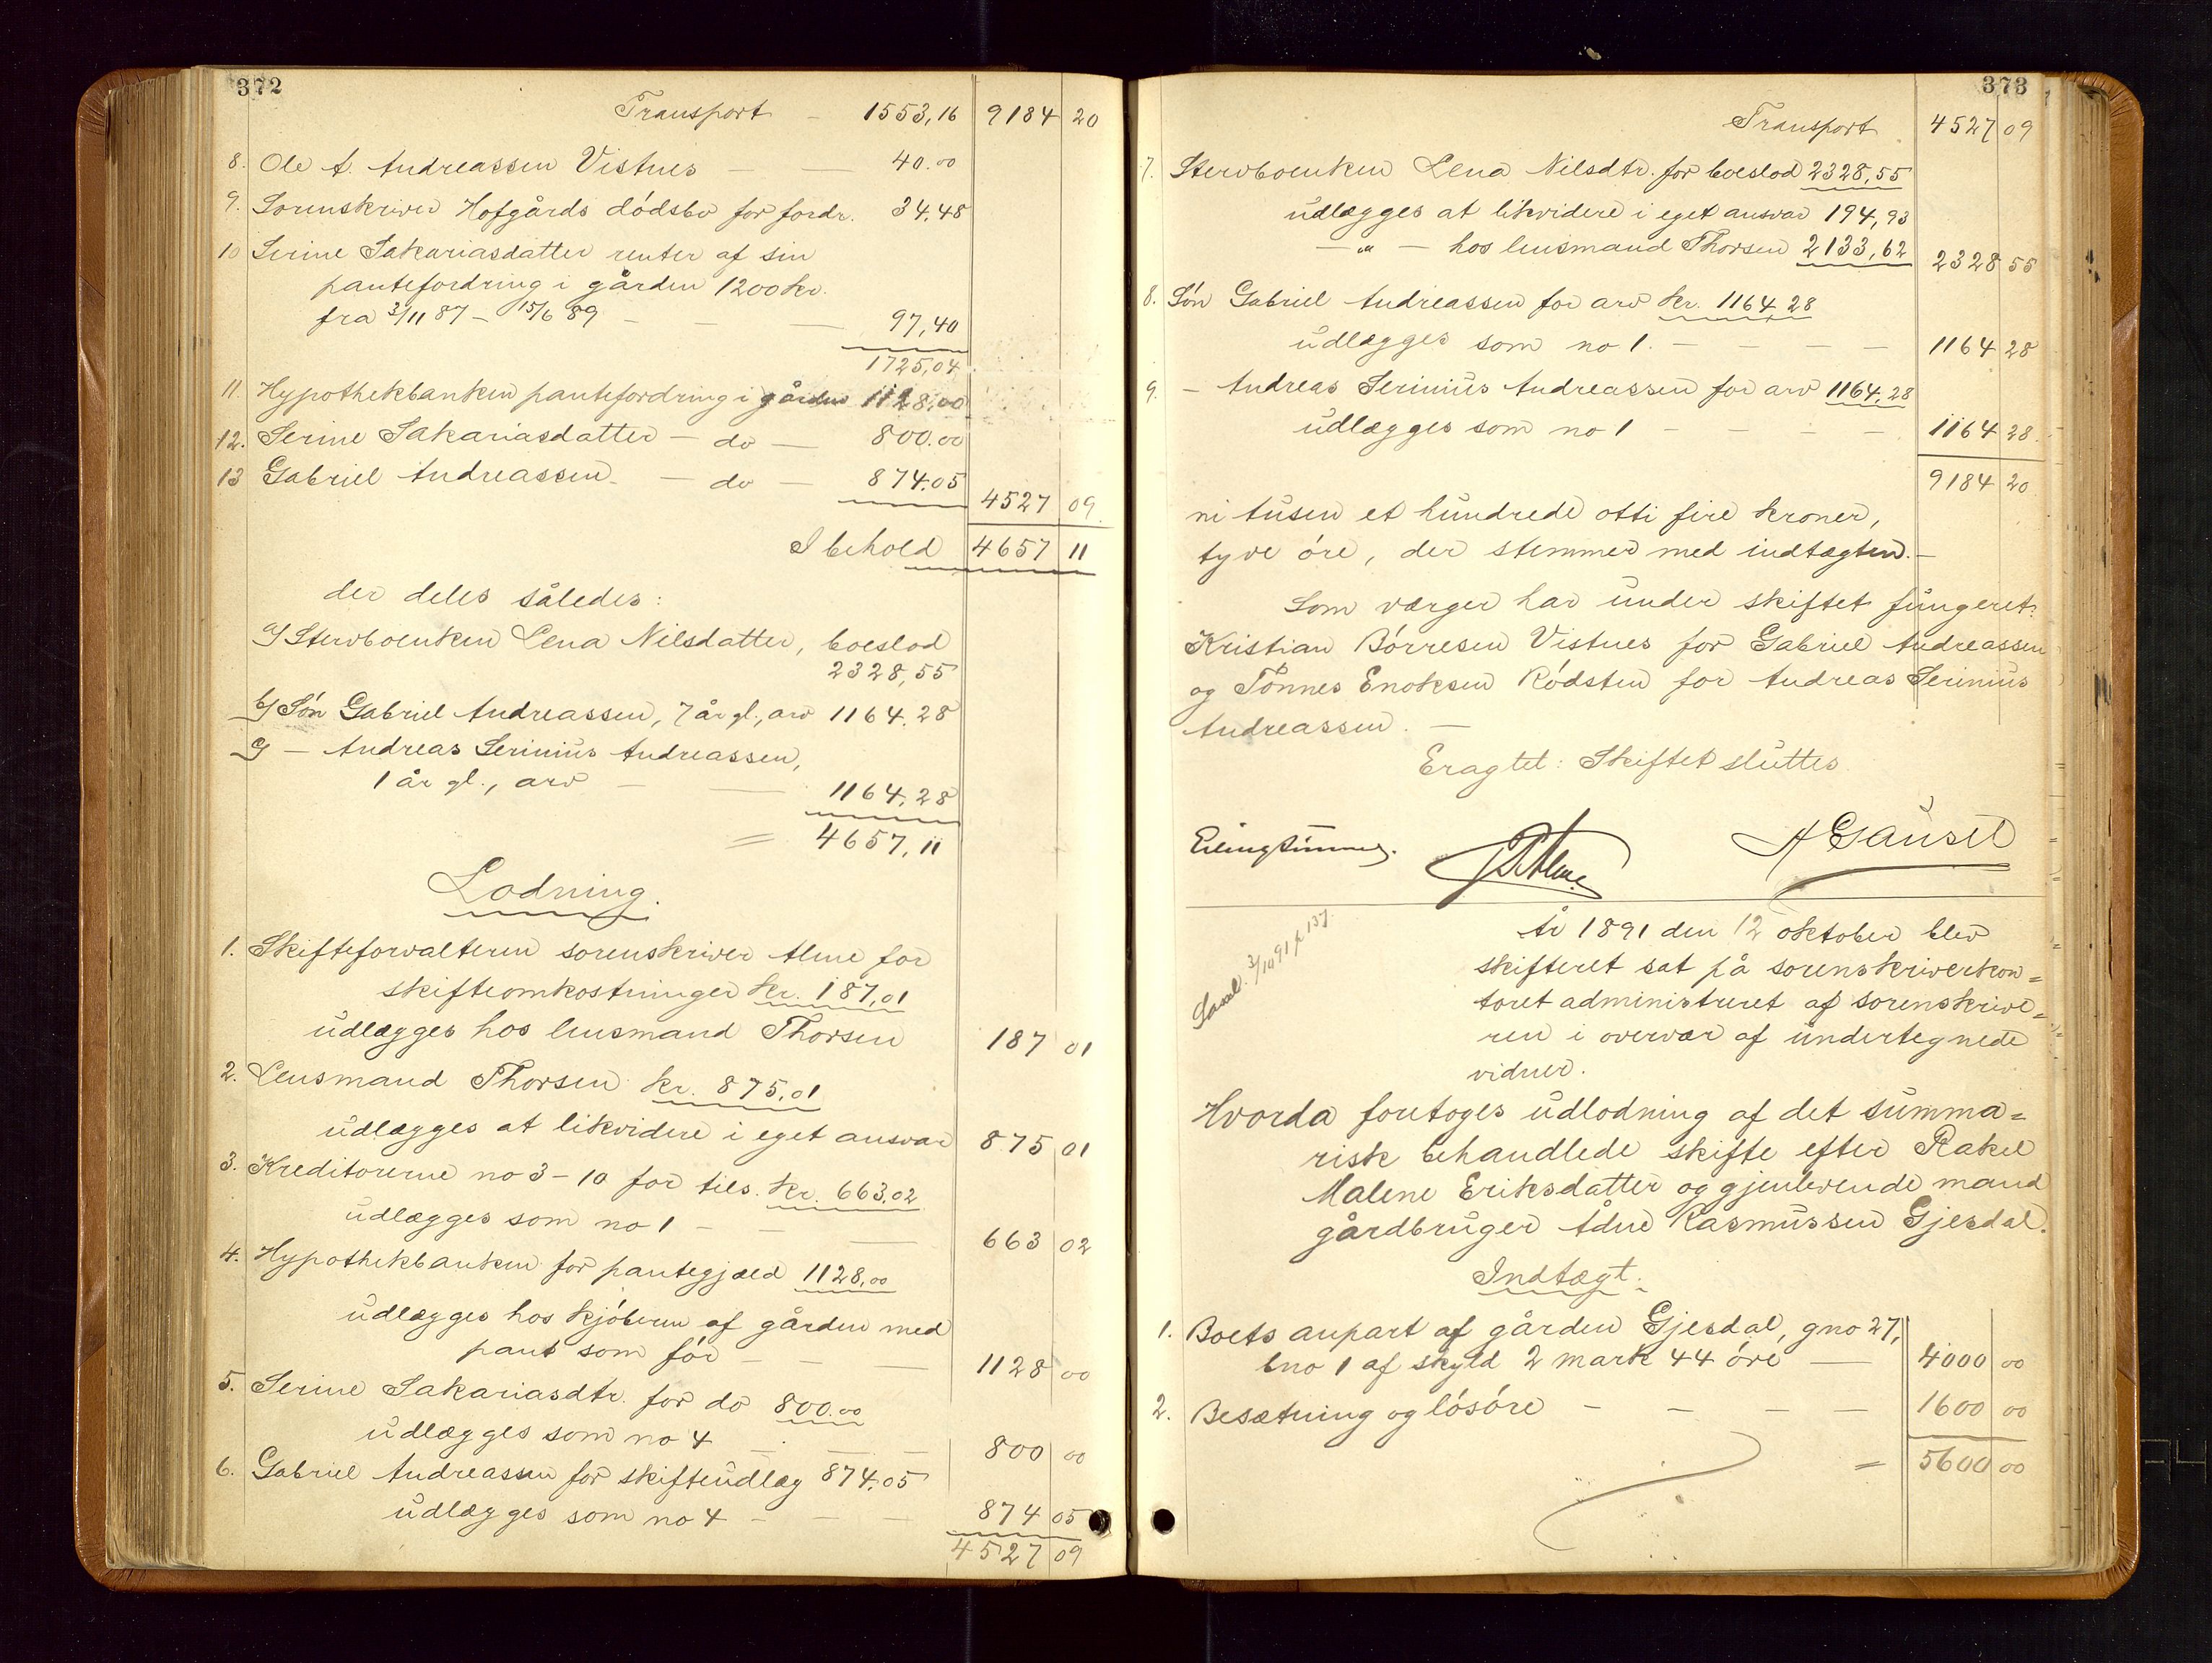 372
Transport - 1553,16 9184 20
8. Ole A. Andreassen Vistnes - — 40.00
9. Sorenskriver Hofgårds dódsbo for fordr. 34.48
10 Serine Sakariasdatter renter af sin
pantefordring i gården 1200 kr.
fra 3/11 87 - 15/6 89 - - — 97,40
1725,04
11. Hypothekbanken pantefordring i gården 1128,00
12. Serine Sakariasdatter - do — 800.00
13 Gabriel Andreassen - do - 874.05 4527 09
I behold 4657 11
der deles således:
a) Stervboenken Lena Nilsdatter, boeslod
2328,55
b) Són Gabriel Andreassen, 7 år gl., arv 1164.28
c) — Andreas Serinius Andreassen,
1 år gl., arv - — 1164,28
= 4657,11
Lodning.
1. Skifteforvalteren sorenskriver Alme for
skifteomkostninger kr. 187,01
udlægges hos lensmand Thorsen 187 01
2. Lensmand Thorsen kr. 875,01
udlægges at likvidere i eget ansvar 875 01
3. Kreditorerne no 3-10 for tils. kr. 663.02
udlægges som no 1 - - — 663 02
4. Hypothekbanken for pantegjæld 1128,00
udlægges hos kjóberen af gården med
pant som fór - - — 1128 00
5. Serine Sakariasdtr. for do 800.00
udlægges som no 4 - — - 800 00
6. Gabriel Andreassen for skifteudlæg 874.05
udlægges som no 4 - - — 874 05
4527 09
373
Transport 4527 09
7. Stervboenken Lena Nilsdtr. for boeslod 2328,55
udlægges at likvidere i eget ansvar 194,93
— " — hos lensmand Thorsen 2133,62 2328 55
8. Són Gabriel Andreassen for arv kr. 1164,28
udlægges som no 1. - - - — 1164 28
9. - Andreas Serinius Andreassen for arv 1164.28
udlægges som no 1 - - - — 1164 28.
9184 20
ni tusen et hundrede otti fire kroner,
tyve óre, der stemmer med indtægten.—
Som værger har under skiftet fungeret:
Kristian Bórresen Vistnes for Gabriel Andreassen
og Tónnes Enoksen Ródsten for Andreas Serinius
Andreassen. —
Eragtet: Skiftet sluttes
Alme. A Gausel
3/10 91 p 137.
År 1891 den 12 oktober blev
skifteret sat på sorenskriverkon=
toret administreret af sorenskrive=
ren i overvær af undertegnede
vidner.
Hvorda foretoges udlodning af det summa=
risk behandlede skifte efter Rakel
Malene Eriksdatter og gjenlevende mand
gårdbruger Ådne Rasmussen Gjesdal.
Indtægt.
1. Boets anpart af gården Gjesdal, gno 27,
bno 1 af skyld 2 mark 44 óre — 4000 00
2. Besætning og lósóre - - - — 1600 00
= 5600 00